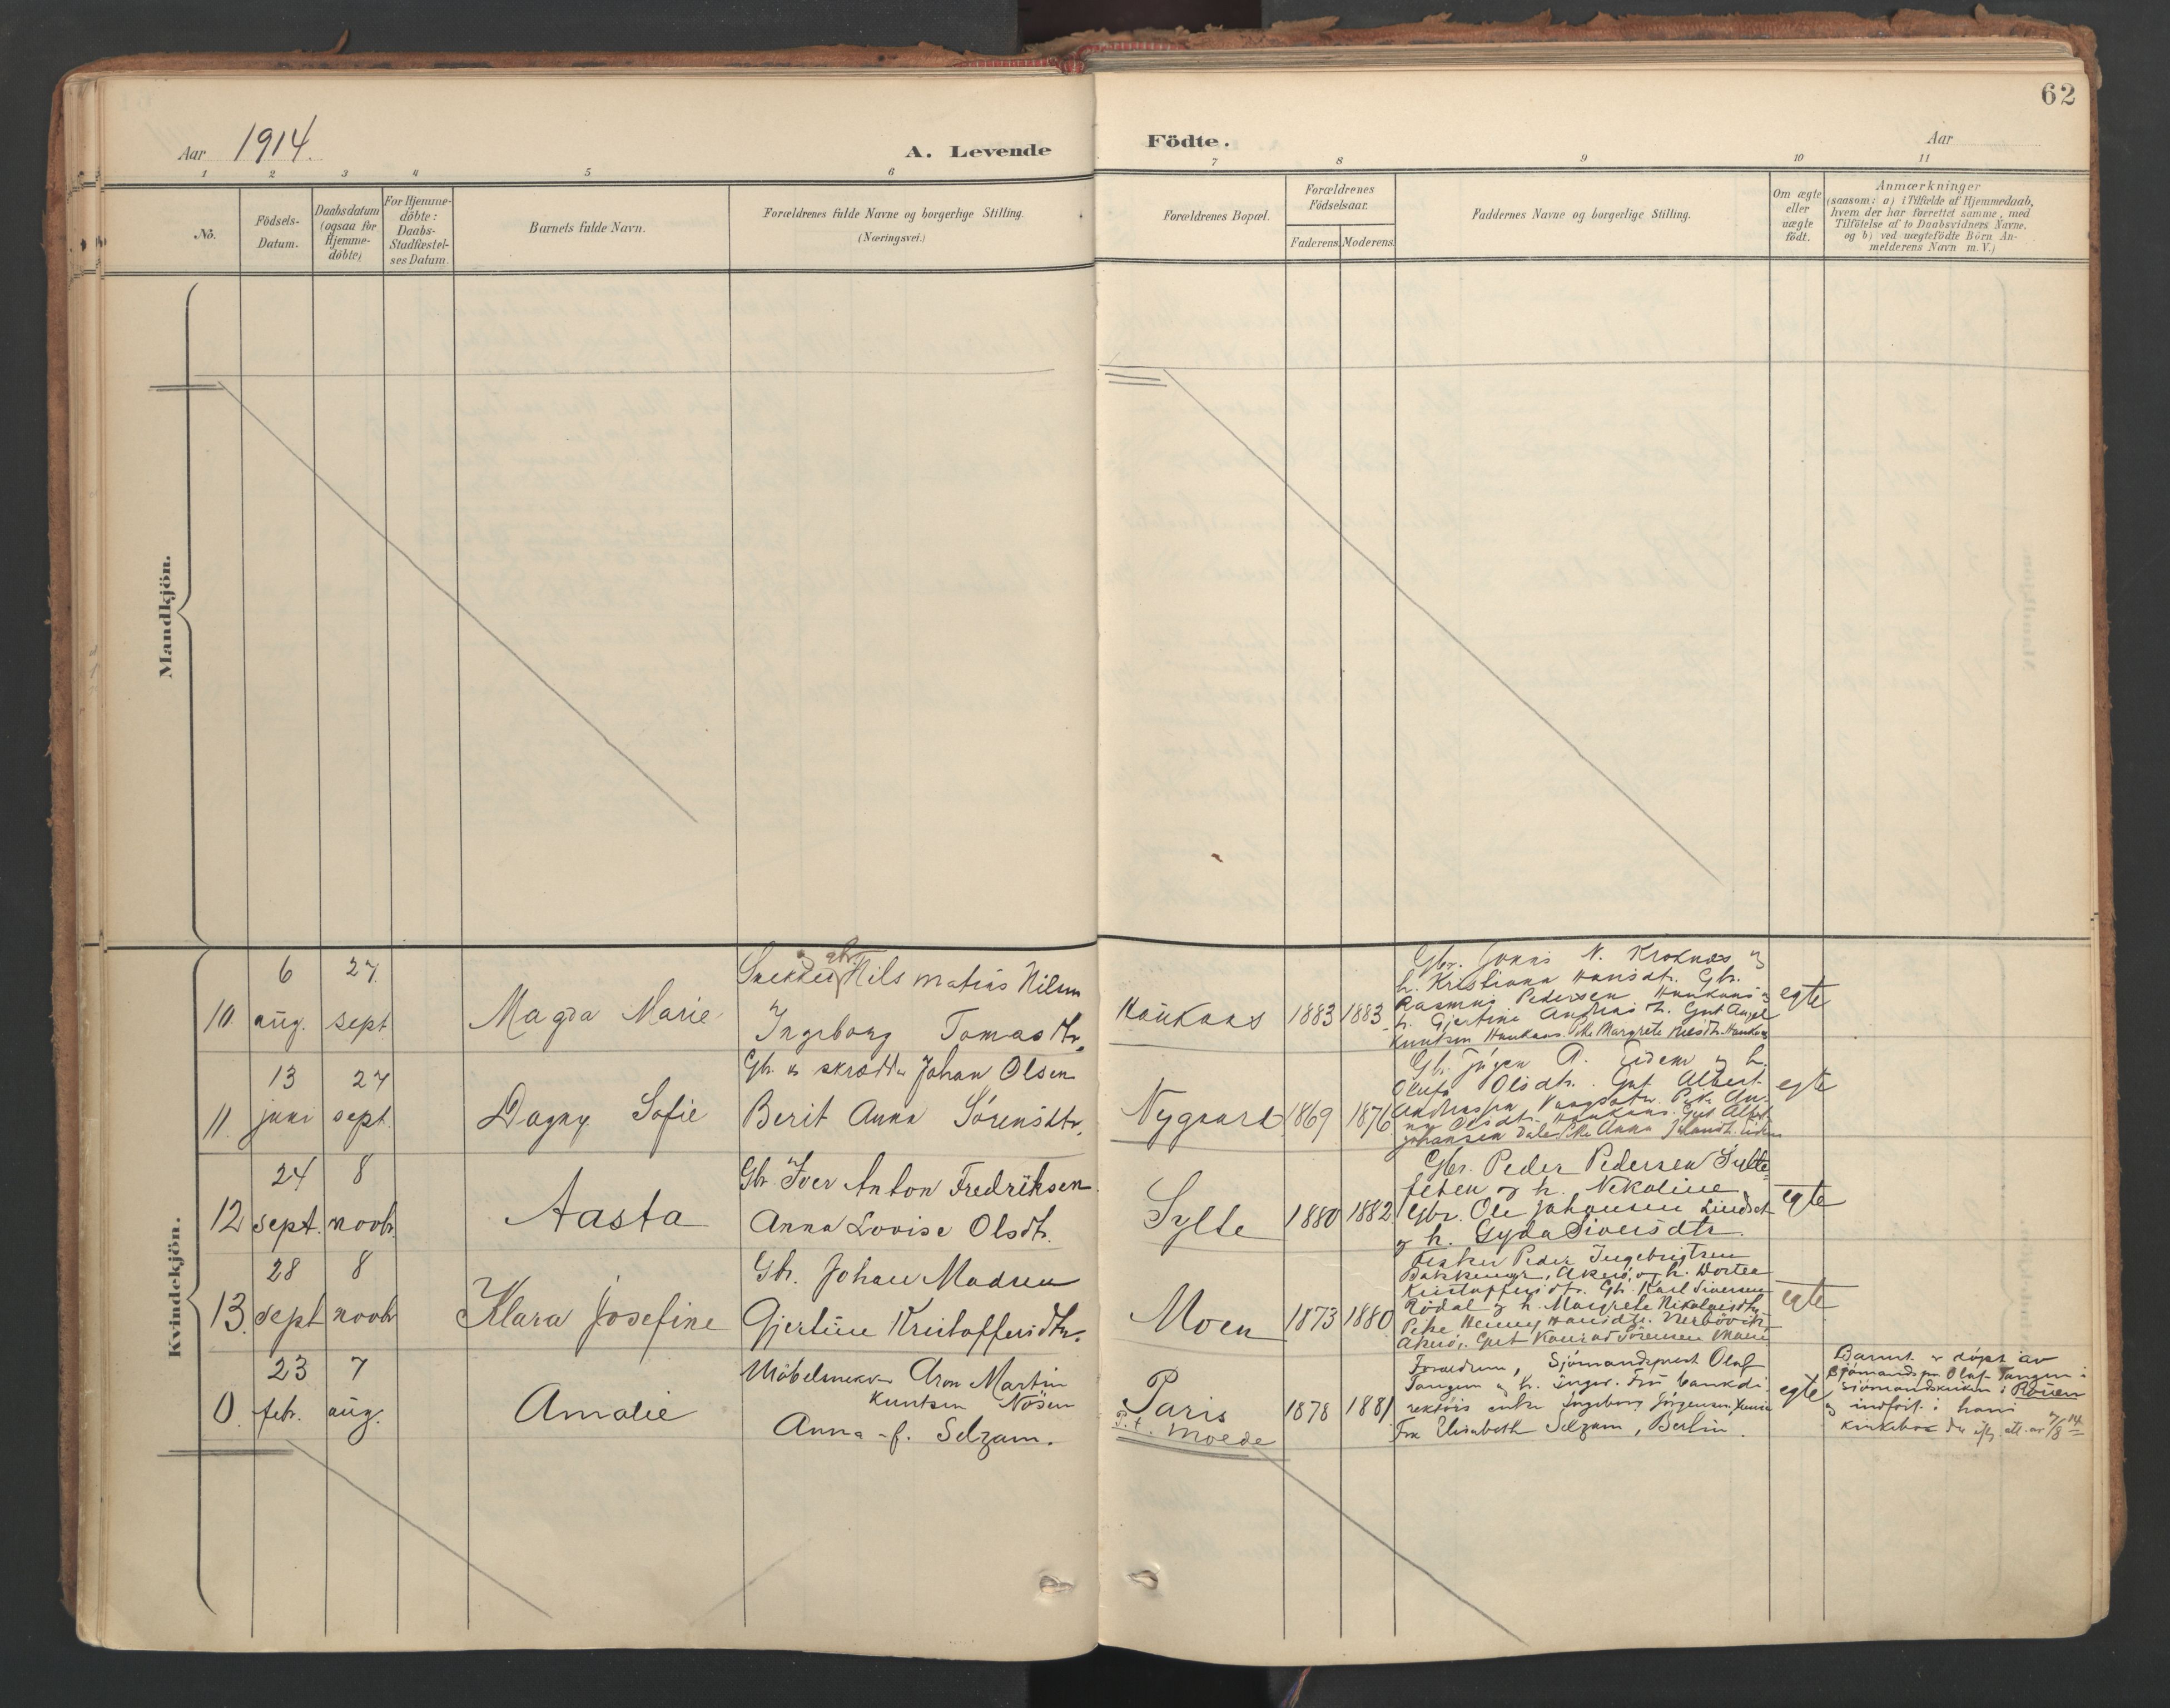 62
Aar 1914.
A. Levende Födte.
Aar
1 2 3 4 5 6 7 8 9 10 11
No.
Födsels-
Datum.
Daabsdatum
(ogsaa for
Hjemme-
döbte)
For Hjemme-
döbte:
Daabs-
Stadfæstel-
ses Datum.
Barnets fulde Navn.
Forældrenes fulde Navne og borgerlige Stilling.
(Næringsvei.)
Forældrenes Bopæl.
Forældrenes
Födselsaar.
Faderens. Moderens.
Faddernes Navne og borgerlige Stilling.
Om ægte
eller
uægte
födt.
Anmærkninger
(saasom: a) i Tilfælde af Hjemmedaab,
hvem der har forrettet samme, med
Tilföielse af to Daabsvidners Navne.
og b) ved uægtefödte Börn An-
melderens Navn m. V.)
Mandkjön.
Kvindekjön.
10.
6
aug.
27.
sept
Magda Marie
Snekker Nils Matias Nilsen
Ingeborg Tomasdtr.
Haukaas
1883 1883
Gbr. Jonas N. Kroknæs og
h. Kristianna Hansdtr. Gbr.
Rasmus Pedersen Haukaas og
h. Gjertine Andreasd. Gut Aksel
Knutsen Haukaas. Pike Margrete Nilsdtr. Haukaas
egte
11.
13
juni
27
sept.
Dagny Sofie
Gbr. & skrædder Johan Olsen
Berit Anna Sörensdtr.
Nygaard
1869 1876
Gbr. Jörgen A. Eidem og h.
Olufa Olsdtr. Gut Albert
Andreassen Pike An-
na Olsdtr. Haukaas. Gut Albert
Johansen Dale Pike Anna Johansdtr. Eidem
egte
12
24
sept.
8
novbr.
Aasta
Gbr. Iver Anton Fredriksen
Anna Lovise Olsdtr.
Sylte
1880 1882
Gbr. Peder Pedersen Sylte-
teten og h. Nekoline.
Gbr. Ole Johansen Lindset
og h. Gyda Siversdtr.
egte
13.
28
sept
8
novbr
Klara Josefine
Gbr. Johan Madsen
Gjertine Kristoffersdtr.
Moen
1873 1880
Fisker Peder Ingebrigtsen
Bakkemyr, Akerö, og h. Dortea
Kristoffersdtr. Gbr. Karl Siversen
Rödal og h. Margrete Nikolaisdtr.
Pike Henny Hansdtr. Nerbövik
Akerö. Gut Konrad Sörensen Moen
egte
0.
23
febr.
7
aug.
Amalie
Möbelsnekker Aron Martin
Knutsen Nösen
Anna f. Selzam.
Paris
P.t. Moede
1878 1881
Forældrene, Sjömandsprest Olaf
Tangen og h. Inger. Frü bankdi-
rektörs enke Ingeborg Jörgensen
Frk Elisabeth Selzam, Berlin.
egte
Barnet er döpt av
Sjömandspr. Olaf Tangen i
Sjömandskirken i Rouen
og indfört i hans
kirkebok der efter att. av 7/8 14